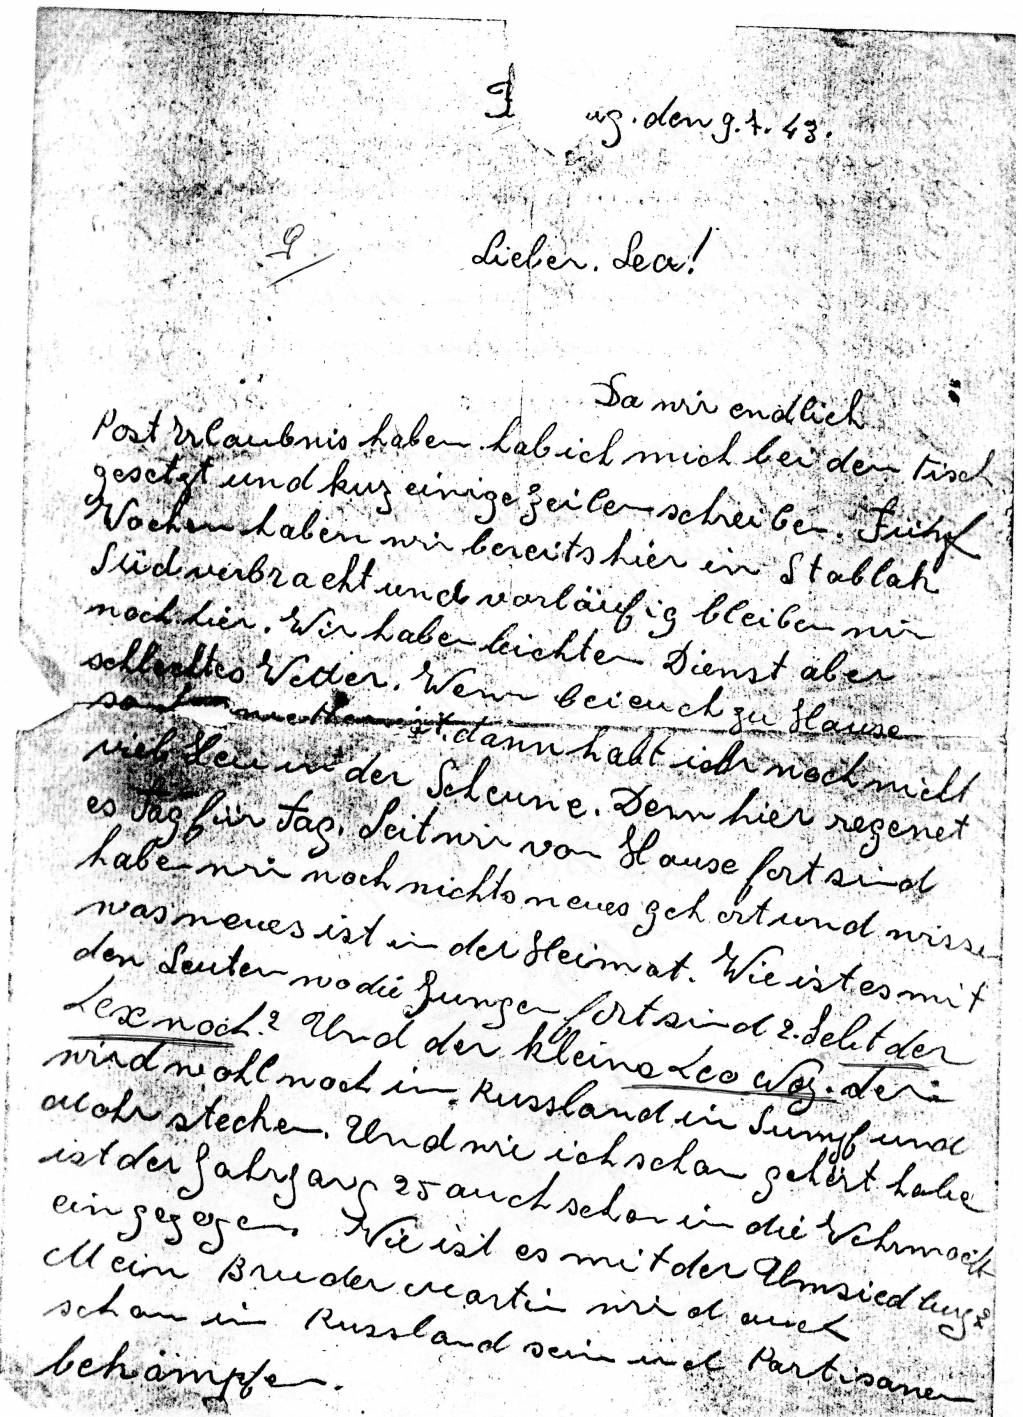 ug. den 9.7.43.
Lieber. Leo!
Da wir endlich
Post Erlaubnis haben hab ich mich bei den Tisch
gesetzt und kuz einige Zeilen schreiben. Fünf
Wochen haben wir bereits hier in Stablak
Süd verbracht und vorläufig bleiben wir
noch hier. Wir haben leichten Dienst aber
schlechtes Wetter. Wenn bei euch zu Hause
ist. dann habt ihr noch nicht
viel Heu in der Scheune. Denn hier regenet
es Tag für Tag. Seit wir von Hause fort sind
haben wir noch nichts neues gehert und wissen
was neues ist in der Heimat. Wie ist es mit
den Leuten wo die Jungen fort sind? Lebt der
Lex noch? Und der kleine Leo Wag. der
wird wohl noch in Russland in Sumpf und
Mohr stechen. Und wie ich schon gehert habe
ist der Jahrgang 25 auch schon in die Wehrmacht
eingezogen. Wie ist es mit der Umsiedlung?
Mein Bruder Martin wird auch
schon in Russland sein und Partisanen
bekämpfen.